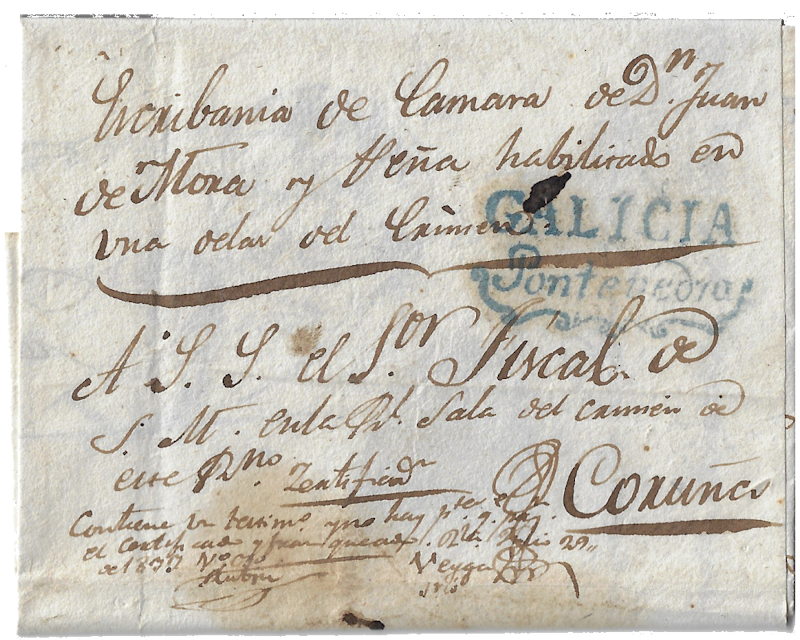 Escribania de Camara de Dn. Juan
de Mora y Peña habilitado en
una delas del Crimen.
GALICIA
Pontevedra.
A S. S. el Sor. Fiscal de
S. M. enla Rl. Sala del crimen de
este Rno. Zertificado
Coruña
Contiene un testimo. y no hay pte. q. pague
el certificado y franqueado. Julio 29
de
Veyga